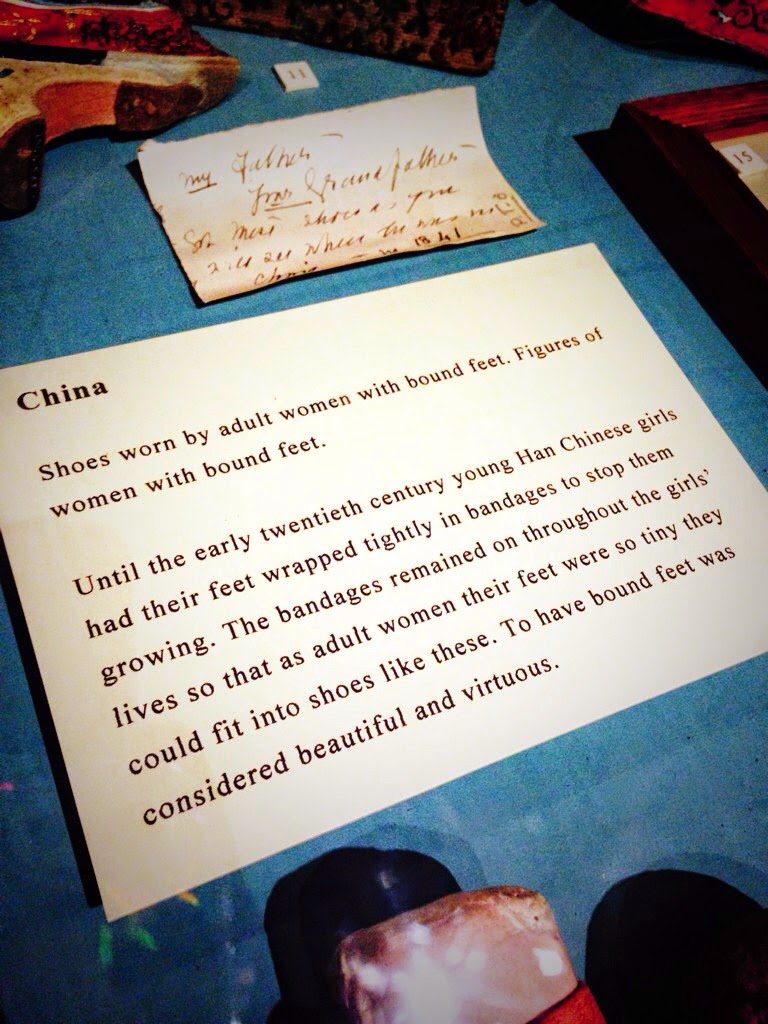 11
my Father
Grandfather
shoes as you
will see where he was in
1841
15
China
Shoes worn by adult women with bound feet. Figures of
women with bound feet.
Until the early twentieth century young Han Chinese girls
had their feet wrapped tightly in bandages to stop them
growing. The bandages remained on throughout the girls'
lives so that as adult women their feet were so tiny they
could fit into shoes like these. To have bound feet was
considered beautiful and virtuous.